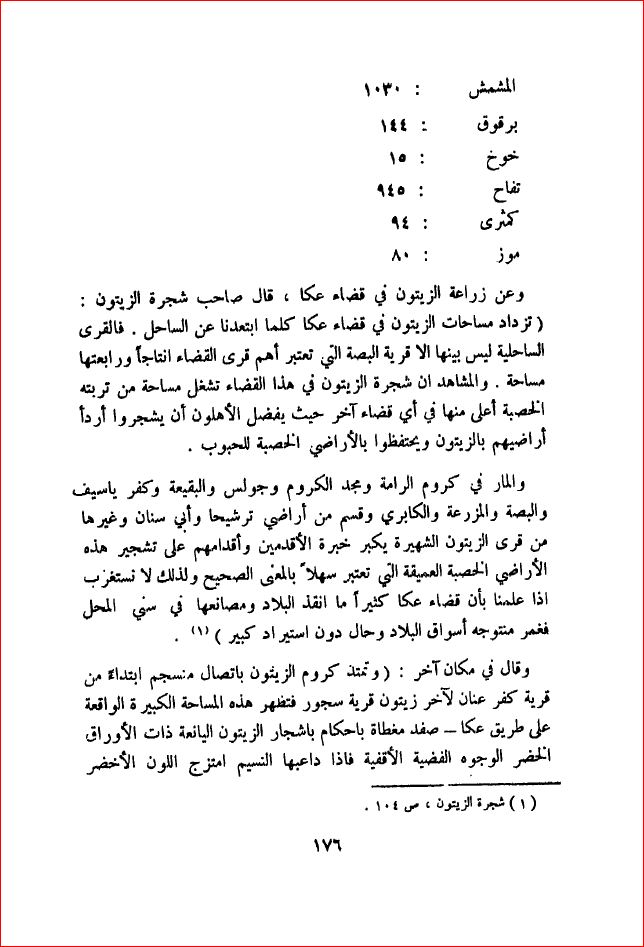 المشمش : ١٠٣٠
برقوق : ١٤٤
خوخ : ١٥
تفاح : ٩٤٥
كمثرى : ٩٤
موز : ٨٠
وعن زراعة الزيتون في قضاء عكا ، قال صاحب شجرة الزيتون :
( تزداد مساحات الزيتون في قضاء عكا كلما ابتعدنا عن الساحل . فالقرى
الساحلية ليس بينها الا قرية البصة التي تعتبر أهم قرى القضاء انتاجاً ورابعتها
مساحة . والمشاهد ان شجرة الزيتون في هذا القضاء تشغل مساحة من تربته
الخصبة أعلى منها في أي قضاء آخر حيث يفضل الأهلون أن يشجروا أردأ
أراضيهم بالزيتون ويحتفظوا بالأراضي الخصبة للحبوب .
والمار في كروم الرامة ومجد الكروم وجولس والبقيعة وكفر ياسيف
والبصة والمزرعة والكابري وقسم من أراضي ترشيحا وأبي سنان وغيرها
من قرى الزيتون الشهيرة يكبر خبرة الأقدمين وأقدامهم على تشجير هذه
الأراضي الخصبة العميقة التي تعتبر سهلاً بالمعنى الصحيح ولذلك لا نستغزب
اذا علمنا بأن قضاء عكا كثيراً ما انقذ البلاد ومصانعها في سني المحل
فغمر منتوجه أسواق البلاد وحال دون استيراد كبير ) (١) .
وقال في مكان آخر : ( وتمتد كروم الزيتون باتصال منسجم ابتداءً من
قرية كفر عنان لآخر زيتون قرية سجور فتظهر هذه المساحة الكبيرة الواقعة
على طريق عكا – صفد مغطاة باحكام باشجار الزيتون اليانعة ذات الأوراق
الخضر الوجوه الفضية الأقفية فاذا داعبها النسيم امتزج اللون الأخضر
( ١ ) شجرة الزيتون ، ص ١٠٤ .
١٧٦